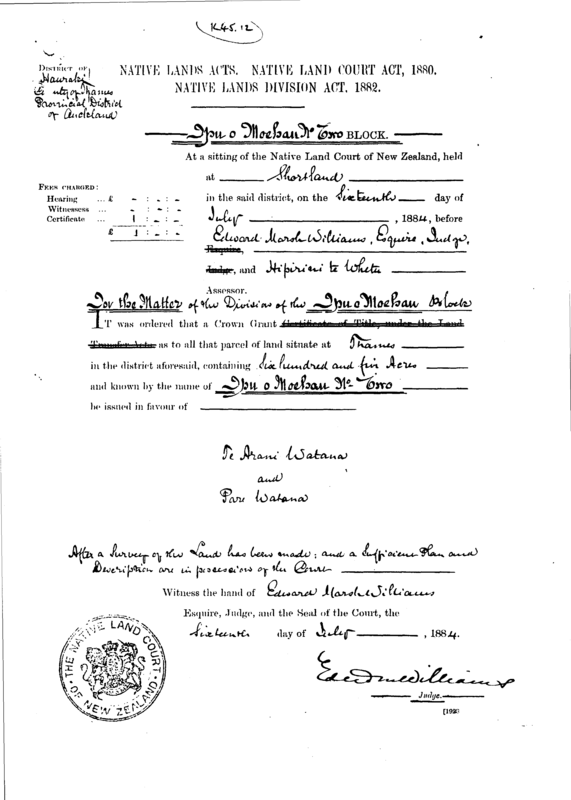 K45.12
DISTRICT OF
Hauraki
County of Thames
Provincial District
of Auckland
NATIVE LANDS ACTS. NATIVE LAND COURT ACT, 1880.
NATIVE LANDS DIVISION ACT, 1882.
Ipu o Moehau No Two BLOCK.
At a sitting of the Native Land Court of New Zealand, held
at Shortland
FEES CHARGED:
Hearing ... £ - : - : -
Witnesses ... - : - : -
Certificate ... 1 : - : -
£ 1 : - : -
in the said district, on the Sixteenth day of
July, 1884, before
Edward Marsh Williams, Esquire, Judge,
Esquire,
Judge, and Hipirini te Whetu
Assessor.
In the Matter of the Division of the Ipu o Moehau Block
IT was ordered that a Crown Grant Certificate of Title, under the Land
Transfer Acts as to all that parcel of land situate at Thames
in the district aforesaid, containing Six hundred and five Acres
and known by the name of Ipu o Moehau No Two
be issued in favour of
Te Arani Watana
and
Pare Watana
After a Survey of the Land has been made; and a Sufficient Plan and
Description are in possession of the Court
Witness the hand of Edward Marsh Williams
Esquire, Judge, and the Seal of the Court, the
Sixteenth day of July, 1884.
THE NATIVE LAND COURT
OF NEW ZEALAND
Judge.